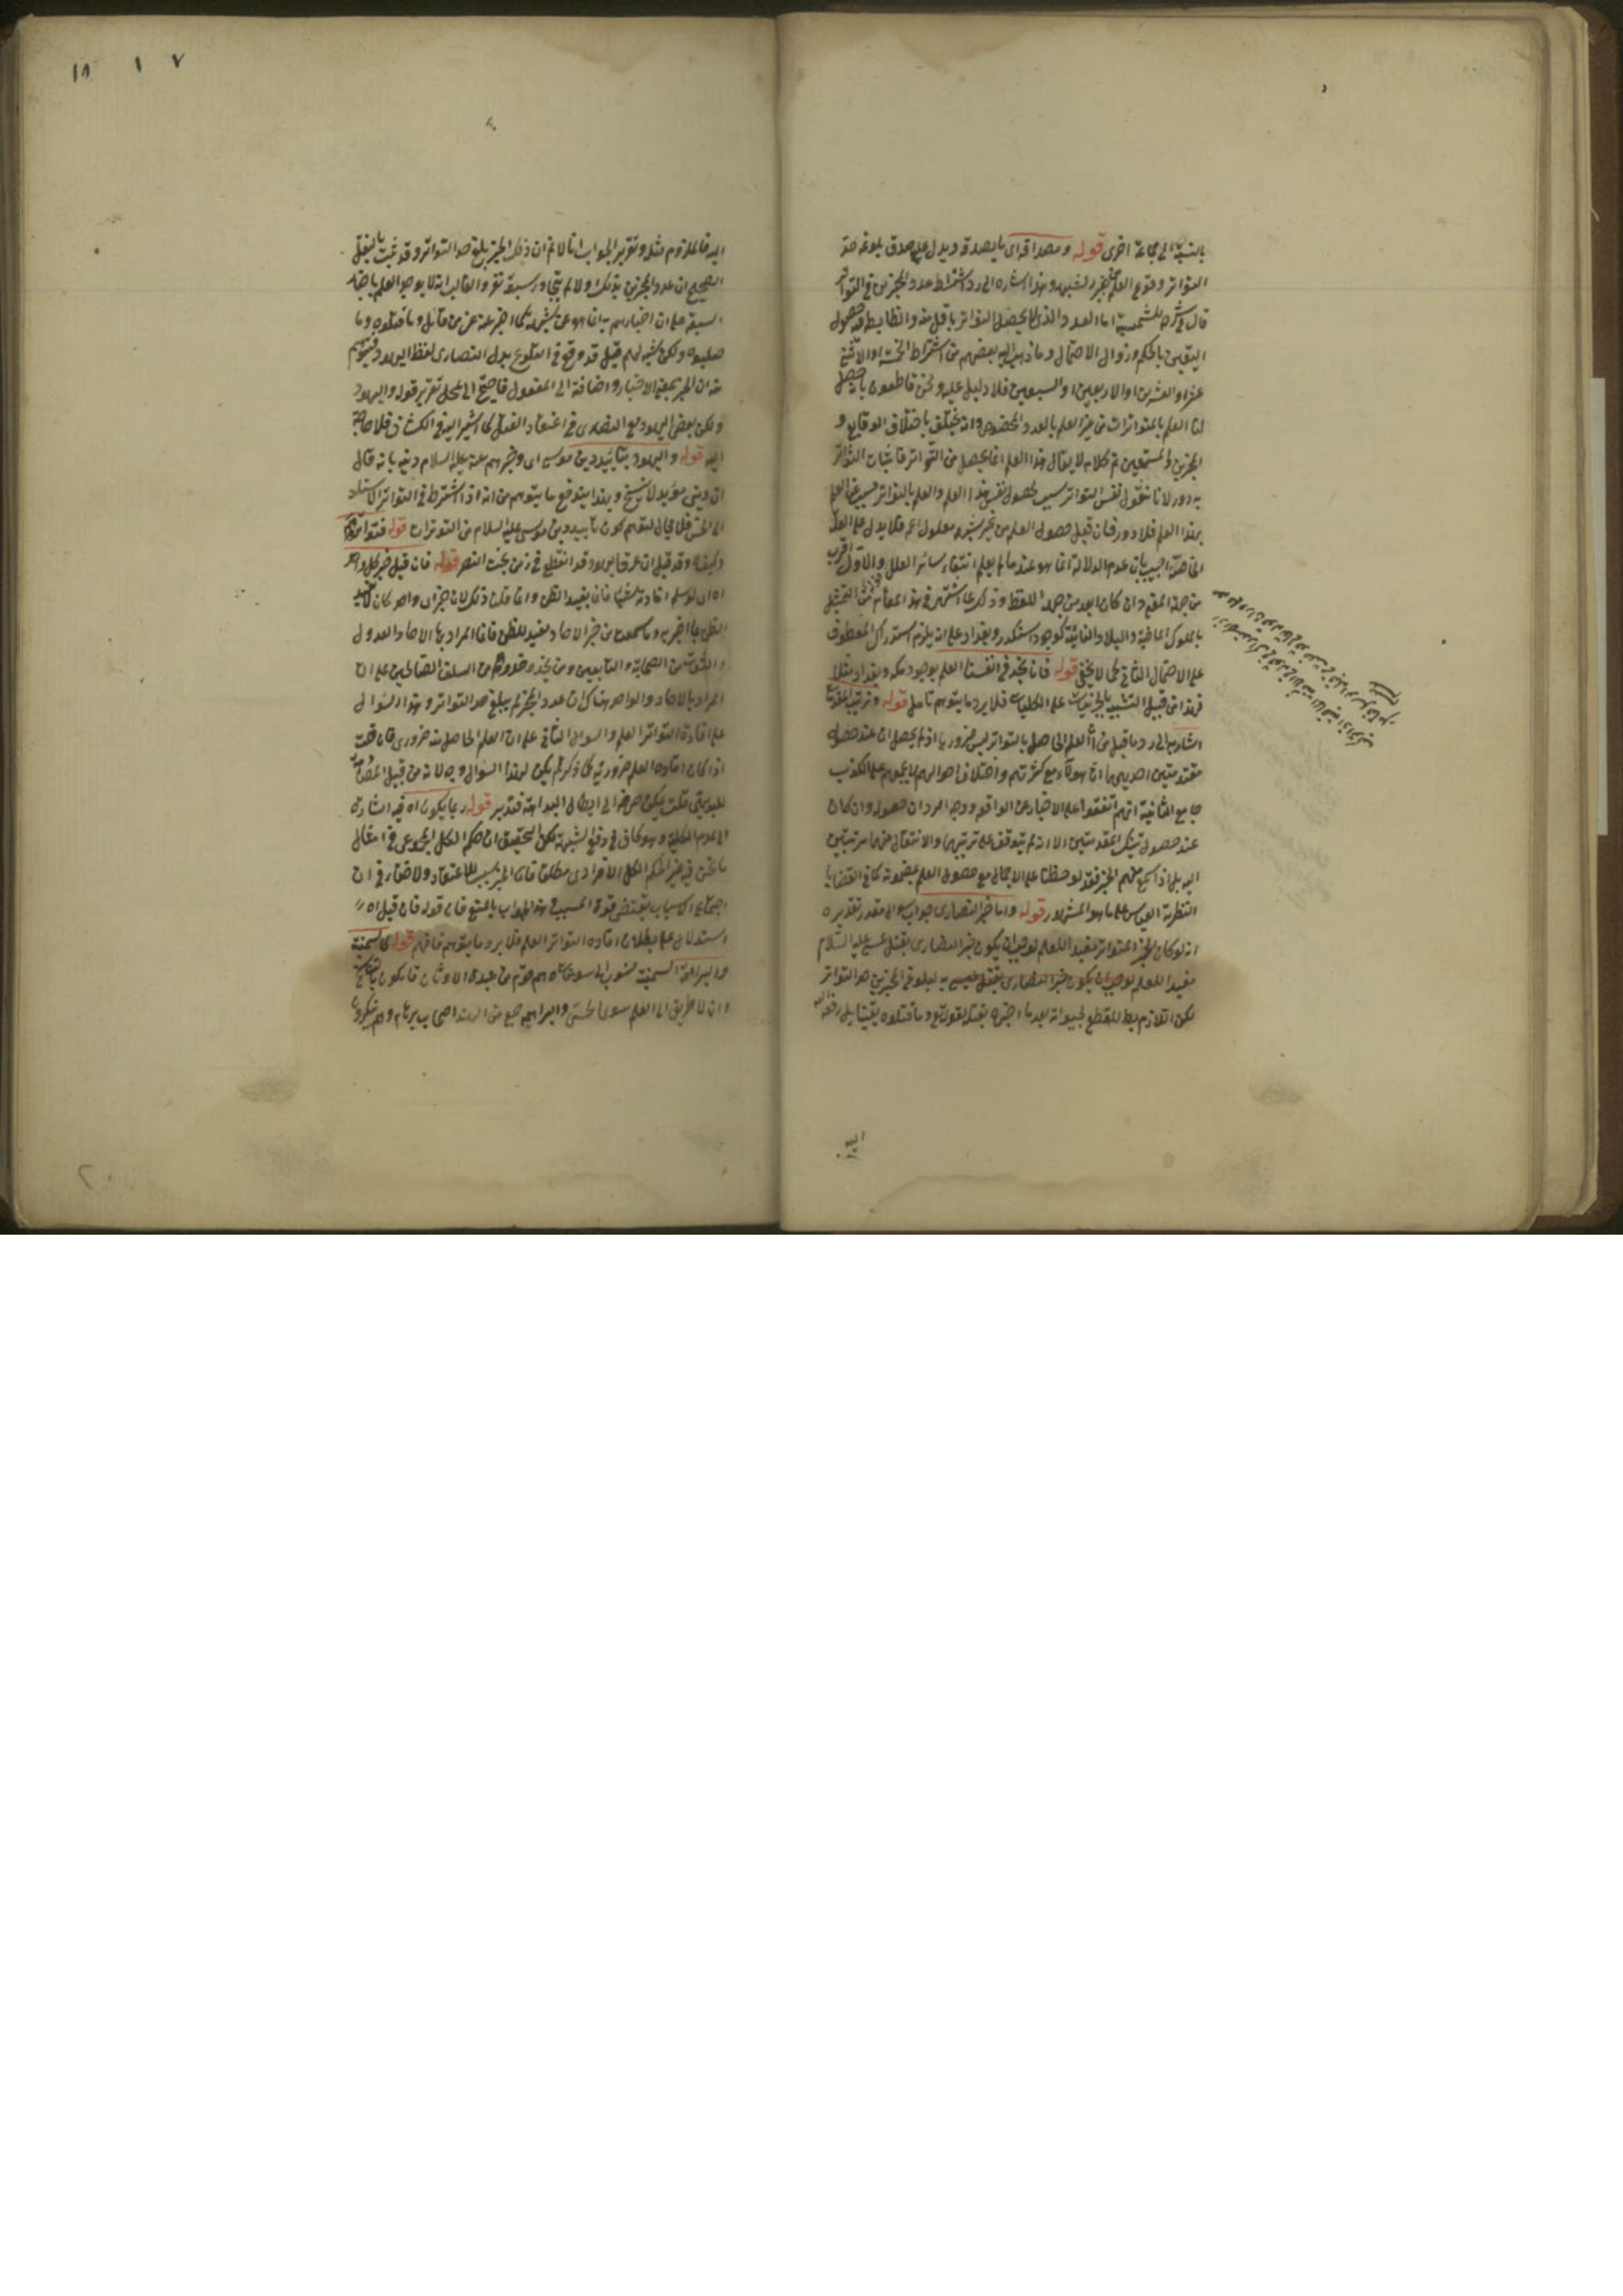 بالنسبة الى جماعة اخرى قوله ومصداقه اى ما يصدقه ويدل على صدق بلوغه حد
التواتر وقوع العلم من غير شبهة وهذا اشارة الى رد اشتراط عدد المخبرين فى التواتر
قال فى شرح الشمسية اما العدد الذى يحصل التواتر باقل منه والضابط فيه حصول
اليقين بالحكم وزوال الاحتمال وما ذهب اليه بعضهم من اشتراط الخمسة او الاثنى
عشر او العشرين او الاربعين او السبعين فلا دليل عليه ونحن قاطعون بانه يحصل
لنا العلم بالمتواترات من غير العلم بالعدد المخصوص وانه يختلف باختلاف الوقايع و
المخبرين والمستمعين تم كلامه لا يقال هذا العلم انما يحصل من التواتر فاثبات التواتر
به دور لانا نقول نفس التواتر سبب لحصول نفس هذا العلم والعلم بالتواتر مسبب عن العلم
بهذا العلم فلا دور فان قيل حصول العلم من غير شبهة معلول اعم فلا يدل على العلة
الخاصة اجيب بان عدم الدلالة انما هو عند ما لم يعلم انتفاء سائر العلل والاول اقرب
من جهة المعنى وان كان ابعد من جهة اللفظ وذلك لما اشتهر فى هذا المقام من التمثيل
بالملوك الماضية والبلاد النائية كوجود اسكندر وبغداد على انه يلزم استدراك المعطوف
على الاحتمال الثانى كما لا يخفى قوله فانا نجد فى انفسنا العلم بوجود مكة وبغداد مثلا
فهذا من قبيل التشبيه بالجزئيات على الكليات فلا يرد ما يتوهم تامل قوله وترتيب المقدمات
اشارة الى رد ما قيل من ان العلم الحاصل بالتواتر ليس ضروريا اذ لم يحصل الا عند حصول
مقدمتين احديهما ان هؤلاء مع كثرتهم واختلاف احوالهم لا يجمعهم على الكذب
جامع الثانية انهم اتفقوا على الاخبار عن الواقعة ووجه الرد ان حصوله وان كان
عند حصول تينك المقدمتين الا انه لم يتوقف على ترتيبهما والانتقال منهما مرتبتين
اليه بل اذا سمع منهم الخبر فقد لوحظتا على الاجمال مع حصول العلم بمضمونه كما فى القضايا
الفطرية القياس على ما هو المشهور قوله واما خبر النصارى جواب سوال مقدر تقديره
انه لو كان الخبر المتواتر مفيدا للعلم لوجب ان يكون خبر النصارى بقتل عيسى عليه السلام
مفيدا للعلم لوجب ان يكون خبر النصارى بقتل عيسى به لبلوغ المخبرين حد التواتر
لكن اللازم بط للقطع بحيوته بعد ما اخبره بقتله لقوله تع وما قتلوه يقينا بل رفعه الله
اليه
اليه فالملزوم مثله وتقرير الجواب انا لا نم ان ذلك الخبر بلغ حد التواتر وقد ثبت بالنقل
الصحيح ان عدد المخبرين بذلك اولا لم يتجاوز سبعة نفر والغالب انه لا يوجد العلم باخبار
سبعة على ان اخبارهم به انما هو عن شبهة كما اخبر عنه عز من قائل وما قتلوه وما
صلبوه ولكن شبه لهم قيل قد وقع فى التلويح بدل النصارى لفظ اليهود فيتوهم
منه ان الخبر بمعنى الاخبار واضافته الى المفعول فاحتيج الى تمحل تقرير قوله واليهود
ولكن بعض اليهود مع النصارى فى اعتقاد القتل كما اشير اليه فى الكشاف فلا حاجة
اليه قوله واليهود بتاييد دين موسى اى وخبرهم عنه عليه السلام دينه بانه قال
ان دينى مؤبد لا ينسخ وبهذا يندفع ما يتوهم من انه اذا اشترط فى التواتر الاستناد
الى الحس فلا مجال لتوهم كون تابيد دين موسى عليه السلام من التواترات قوله فتواتره
وكيف لا وقد قيل ان عرق اليهود قد انقطع فى زمن بخت النصر قوله فان قيل خبر كل واحد
اه اى لو سلم افادته شيئا فان يفيد الظن وانما قلنا ذلك لان خبر اى واحد كان لا يفيد
الظن بما اخبر به وما سمعت من خبر الاحاد مفيد للظن فانما المراد بها الاحاد العدول
والثقات من الصحابة والتابعين ومن يحذو حذوهم من السلف الصالحين على ان
المراد بالاحاد والواحد هناك ان عدد المخبر لم يبلغ حد التواتر وهذا السؤال
على افادة التواتر العلم والسوال الثانى على ان العلم الحاصل منه ضرورى فان قلت
اذا كان افادة العلم ضرورية كما ذكر لم يكن لهذا السؤال وجه لانه من قبيل المصادم
للبديهى قلت يمكن صرفه الى ابطال البداهة فتدبر قوله ربما يكون اه فيه اشارة
الى عدم الكلية وهو كاف فى دفع الشبهة لكن التحقيق ان حكم الكل المجموعى فى امثال
ما نحن فيه غير الحكم الكل الافرادى مطلقا فان الخبر سبب للاعتقاد ولا خفاء فى ان
اجتماع الاسباب يقتضى قوة المسبب فهذا الجواب بالمنع فان قوله فان قيل اه
استدلال على بطلان افادة التواتر العلم فلا يرد ما يتوهم فافهم قوله كالسمنية
والبراهمة السمنية منسوب الى سومنات هم قوم من عبدة الاوثان قائلون بالتناسخ
وان لا طريق الى العلم سوى الحس والبراهمة جمع من الهند اصحاب برهام وهم منكرون